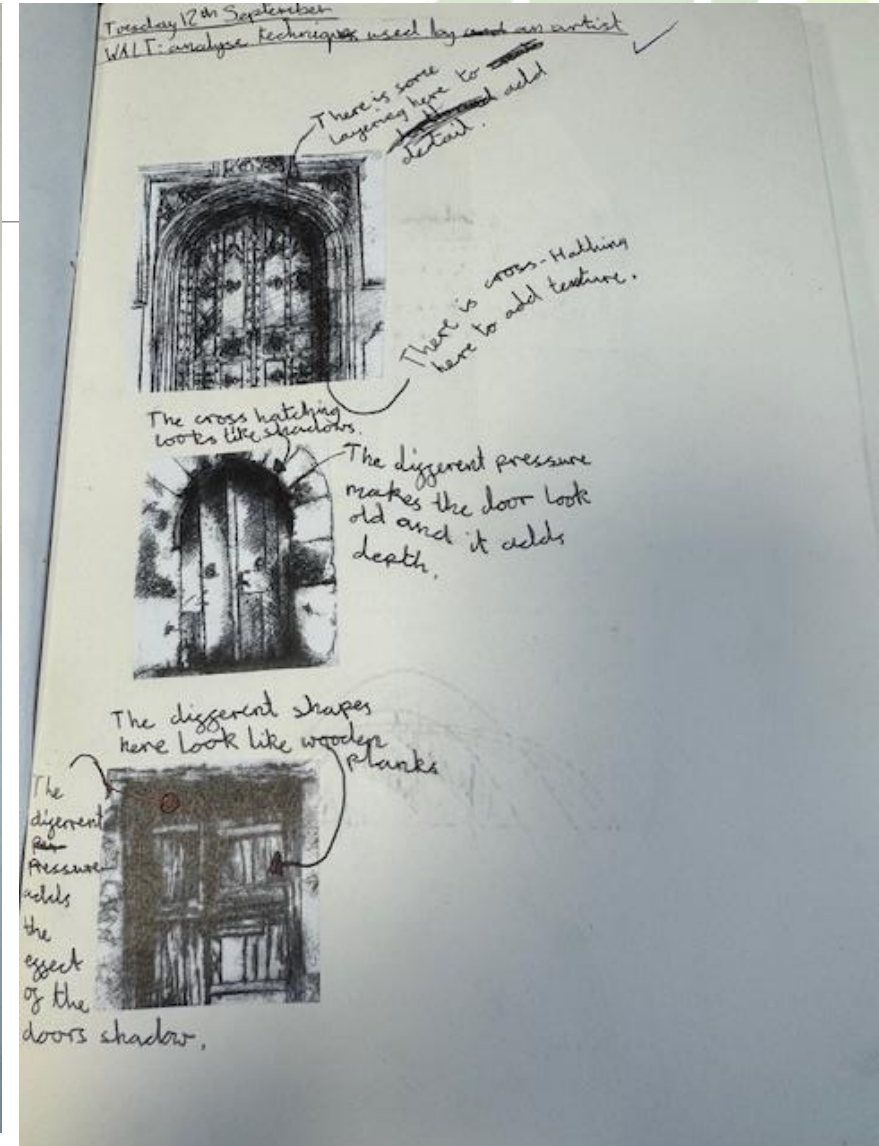 Tuesday 12th September
WALT: analyse techniques used by an artist
There is some
layering here to
add
detail.
There is cross-Hathing
here to add texture.
The cross hatching
looks like shadows.
The different pressure
makes the door look
old and it adds
depth.
The different shapes
here look like wooden
planks
The
diferrent
Pressure
adds
the
effect
of the
doors shadow.